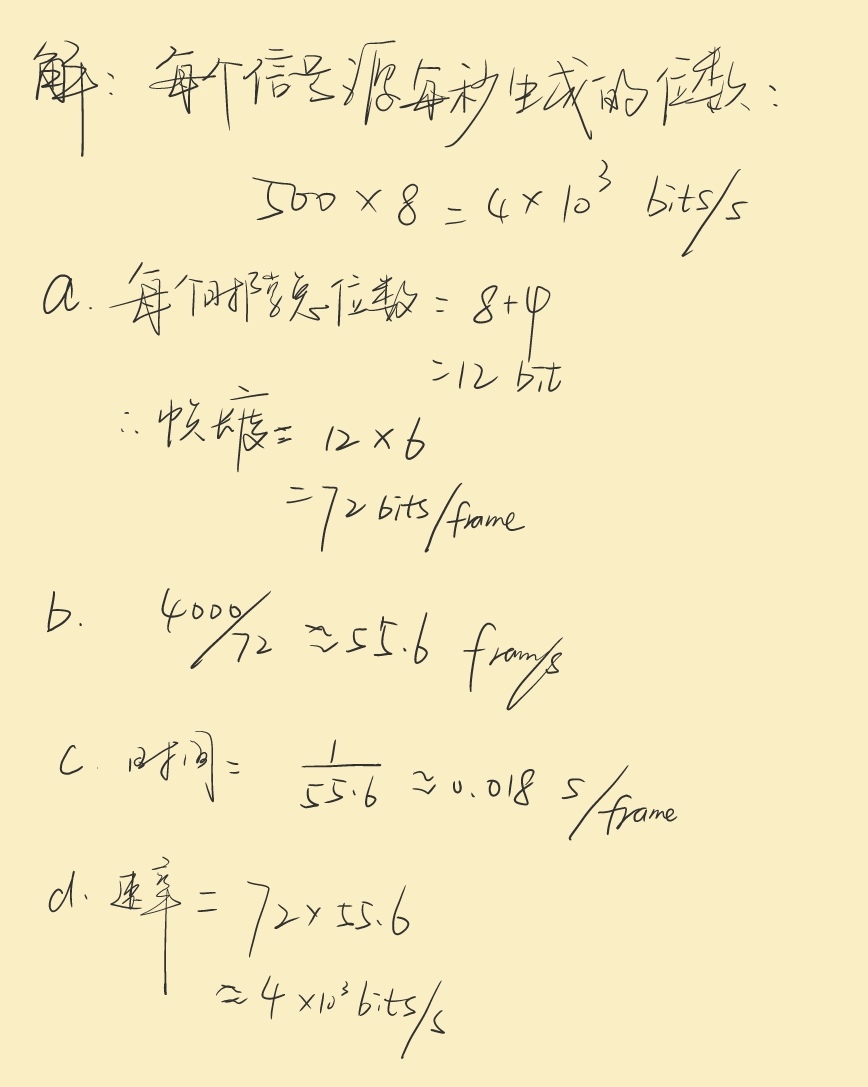 解：每个信号源每秒生成的位数：
500 × 8 = 4 × 10³ bits/s
a. 每个时隙总位数 = 8+4
=12 bit
∴ 帧长度 = 12 × 6
= 72 bits/frame
b. 4000/72 ≈ 55.6 fram/s
c. 时间 = 1/55.6 ≈ 0.018 s/frame
d. 速率 = 72 × 55.6
≈ 4 ×10³ bits/s